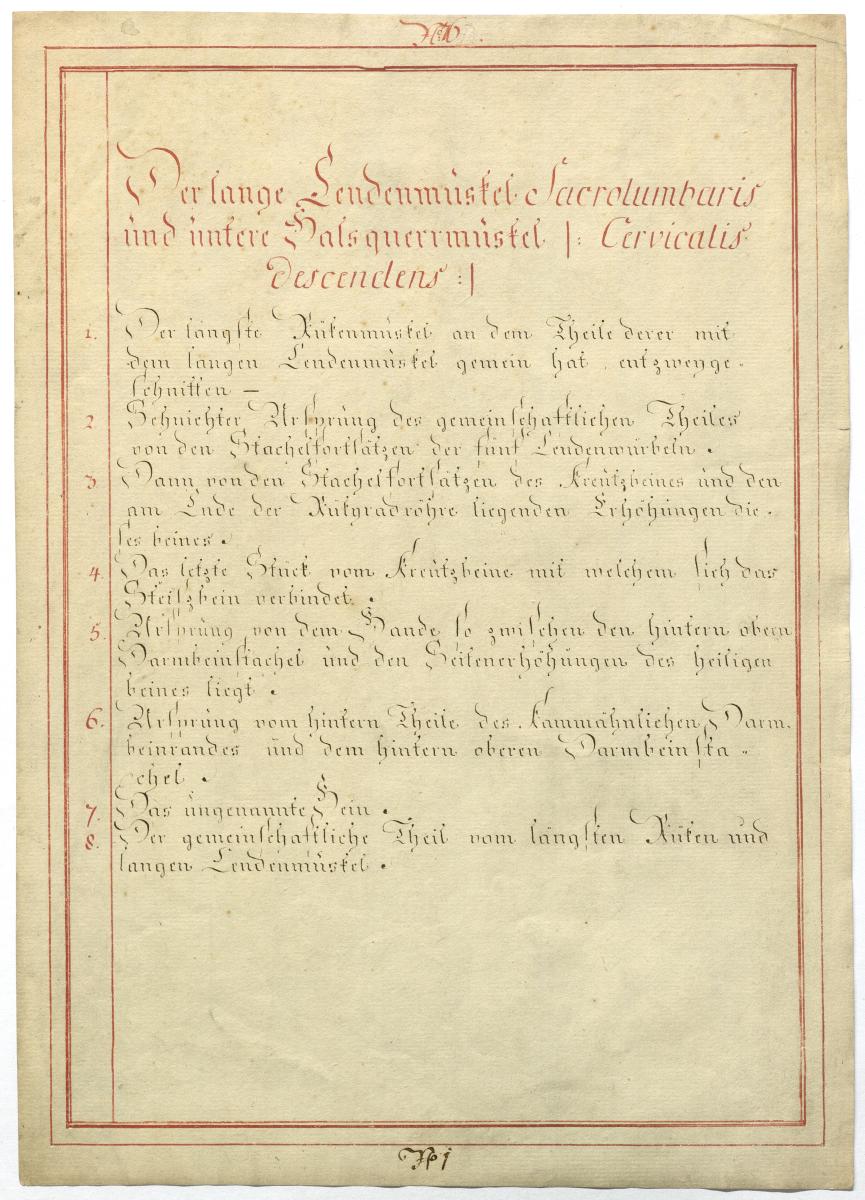 Der lange Lendenmuskel Sacrolumbaris
und untere Halsquerrmuskel |: Cervicalis
descendens :|
1. Der längste Rükenmuskel an dem Theile derer mit
dem langen Lendenmuskel gemein hat, entzweyge-
schnitten —
2 Sehnichter Ursprung des gemeinschaftlichen Theiles
von den Stachelfortsätzen der fünf Lendenwürbeln.
3 Dann von den Stachelfortsätzen des Kreutzbeines und den
am Ende der Rükgradröhre liegenden Erhöhungen die-
ses beines.
4. Das letzte Stück vom Kreutzbeine mit welchem sich das
Steiszbein verbindet.
5. Ursprung von dem Bande so zwischen den hintern obern
Darmbeinstachel und den Seitenerhöhungen des heiligen
beines liegt.
6. Ursprung vom hintern Theile des kammähnlichen Darm-
beinrandes und dem hintern oberen Darmbeinsta-
chel.
7. Das ungenannte Bein.
8. Der gemeinschaftliche Theil vom längsten Rüken und
langen Lendenmuskel.
No 1